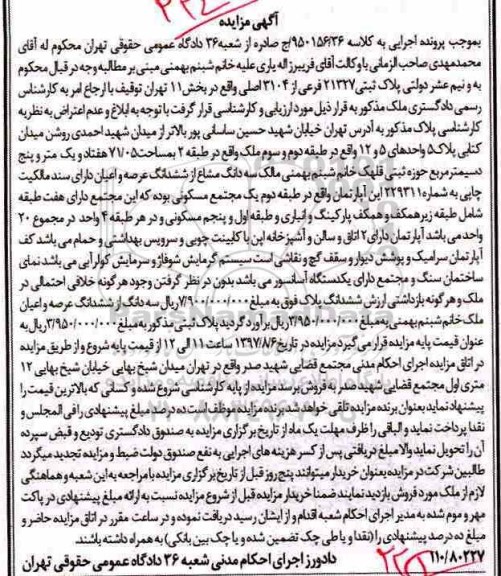 آگهی مزایده
بموجب پرونده اجرایی به کلاسه ۹۵۰۱۵۶/۳۶/ج صادره از شعبه ۳۶ دادگاه عمومی حقوقی تهران محکوم له آقای
محمدمهدی صاحب الزمانی با وکالت آقای فریبرز اله یاری علیه خانم شبنم بهمنی مبنی بر مطالبه وجه در قبال محکوم
به و نیم عشر دولتی پلاک ثبتی ۲۱۳۲۷ فرعی از ۳۱۰۴ اصلی واقع در بخش ۱۱ تهران توقیف با ارجاع امر به کارشناس
رسمی دادگستری ملک مذکور به قرار ذیل مورد ارزیابی و کارشناسی قرار گرفت با توجه به ابلاغ و عدم اعتراض به نظریه
کارشناسی پلاک مذکور به آدرس تهران خیابان شهید حسین ساسانی پور بالاتر از میدان شهید احمدی روشن میدان
کتابی پلاک ۵ واحدهای ۵ و ۱۲ واقع در طبقه دوم و سوم ملک واقع در طبقه ۲ بمساحت ۷۱/۰۵ هفتاد و یک متر و پنج
دسیمتر مربع حوزه ثبتی قلهک خانم شبنم بهمنی مالک سه دانگ مشاع از ششدانگ عرصه و اعیان دارای سند مالکیت
چاپی به شماره ۲۲۹۳۱۱ این آپارتمان واقع در طبقه دوم یک مجتمع مسکونی بوده که این مجتمع دارای هفت طبقه
شامل طبقه زیر همکف و همکف پارکینگ و انباری و طبقه اول و پنجم مسکونی و در هر طبقه ۴ واحد در مجموع ۲۰
واحد می باشد آپارتمان دارای ۲ اتاق و سالن و آشپزخانه اپن با کابینت چوبی و سرویس بهداشتی و حمام می باشد کف
آپارتمان سرامیک و پوشش دیوار و سقف گچ و نقاشی است سیستم گرمایش شوفاژ و سرمایش کولر آبی می باشد نمای
ساختمان سنگ و مجتمع دارای یکدستگاه آسانسور می باشد بدون در نظر گرفتن وجود هرگونه خلافی احتمالی در
ملک و هر گونه بازداشتی ارزش ششدانگ پلاک فوق به مبلغ ۷/۹۰۰/۰۰۰/۰۰۰ ریال سه دانگ از ششدانگ عرصه و اعیان
ملک خانم شبنم بهمنی به مبلغ ۳/۹۵۰/۰۰۰/۰۰۰ ریال برآورد گردید پلاک ثبتی مذکور به مبلغ ۳/۹۵۰/۰۰۰/۰۰۰ ریال به
عنوان قیمت پایه مزایده قرار می گیرد مزایده در تاریخ ۱۳۹۷/۸/۶ ساعت ۱۱ الی ۱۲ از قیمت پایه شروع و از طریق مزایده
در اتاق مزایده اجرای احکام مدنی مجتمع قضایی شهید صدر واقع در تهران میدان شیخ بهایی خیابان شیخ بهایی ۱۲
متری اول مجتمع قضایی شهید صدر به فروش برسد مزایده از پایه کارشناسی شروع شده و کسانی که بالاترین قیمت را
پیشنهاد نماید بعنوان برنده مزایده تلقی خواهد شد برنده مزایده موظف است ده درصد مبلغ پیشنهادی را فی المجلس و
نقدا پرداخت نماید و الباقی را ظرف مهلت یک ماه از تاریخ برگزاری مزایده به صندوق دادگستری تودیع و قبض سپرده
آن را تحویل نماید والا مبلغ دریافتی پس از کسر هزینه های اجرایی به نفع صندوق دولت ضبط و مزایده تجدید میگردد
طالبین شرکت در مزایده بعنوان خریدار میتوانند پنج روز قبل از تاریخ برگزاری مزایده با مراجعه به این شعبه و هماهنگی
لازم از ملک مورد فروش بازدید نمایند ضمنا خریدار مزایده قبل از شروع مزایده نسبت به ارائه مبلغ پیشنهادی در پاکت
مهر و موم شده به مدیر اجرای احکام شعبه اقدام و از ایشان رسید دریافت نموده و در ساعت مقرر در اتاق مزایده حاضر و
مبلغ ده درصد پیشنهادی را (نقد و یا طی چک تضمین شده و یا چک بین بانکی) به همراه داشته باشند.
۱۱۰/۸۰۲۲۷ دادورز اجرای احکام مدنی شعبه ۳۶ دادگاه عمومی حقوقی تهران